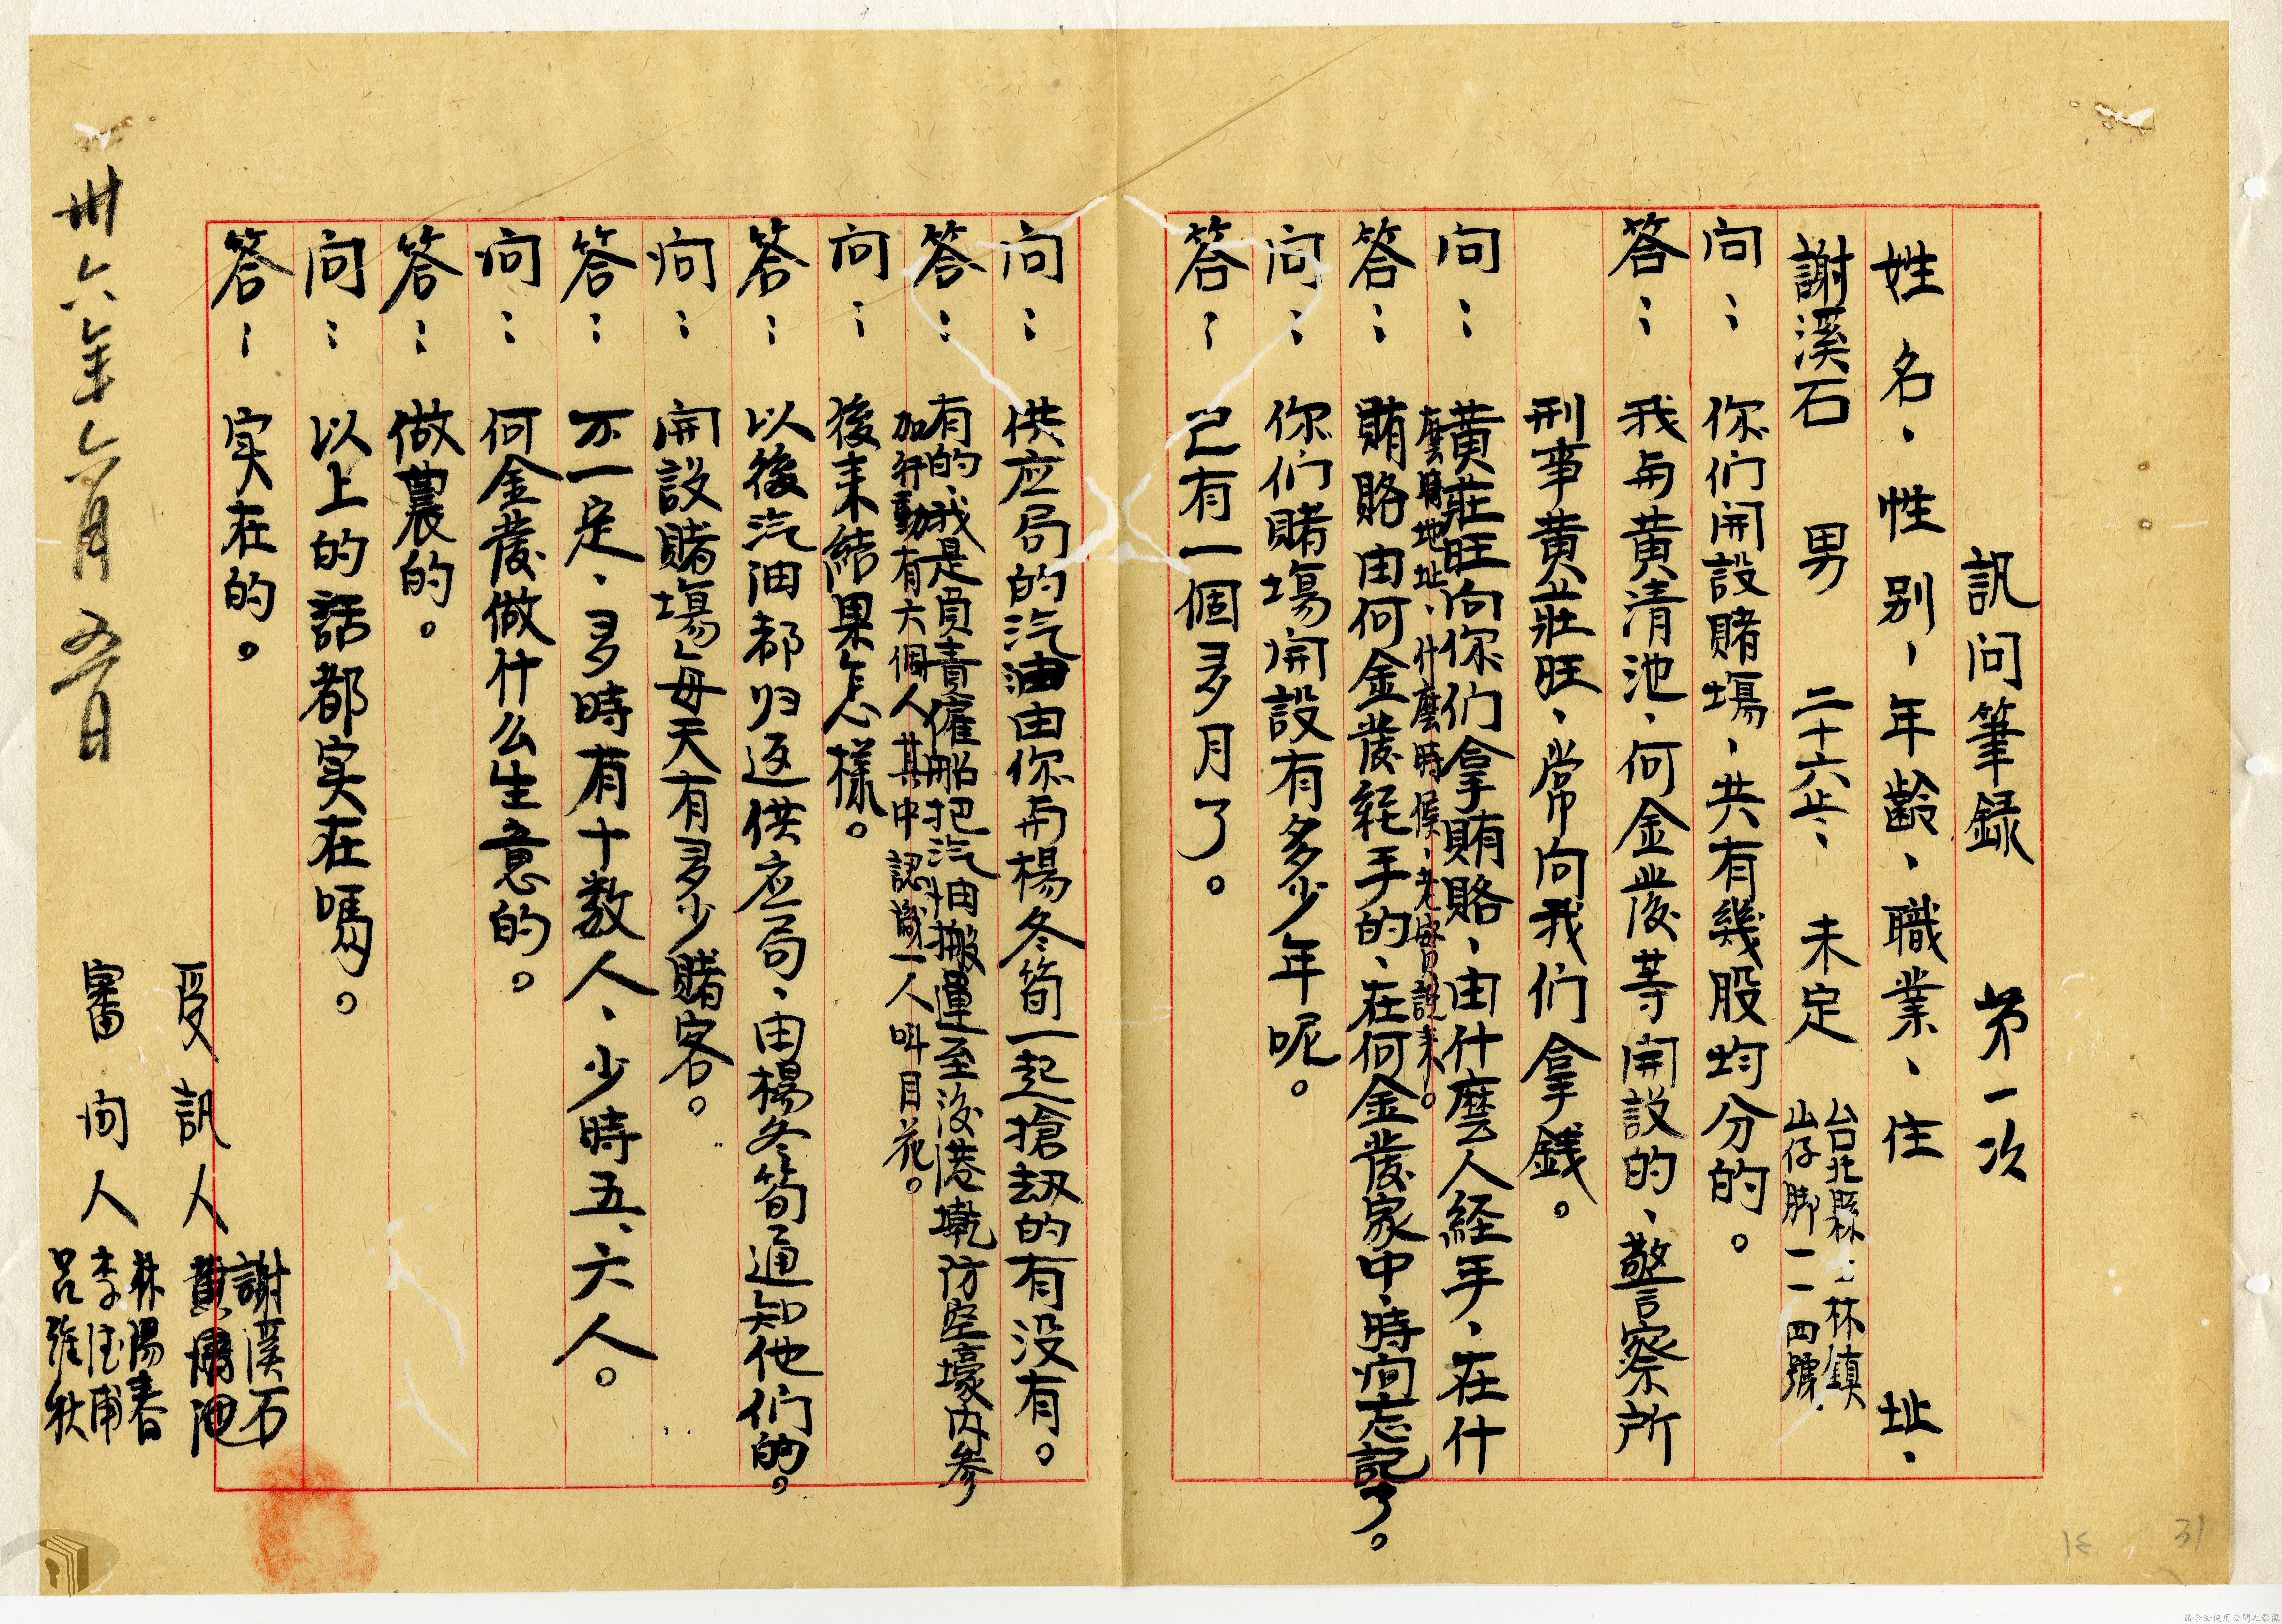 訊问筆録 第一次
姓名、性别、年齡、職業、住址、
謝溪石 男 二十六歨 未定 台北縣士林鎮
山仔脚一一四號
问：你们開設賭場、共有幾股均分的。
答：我与黄清池、何金發等開設的、警察所
刑事黄莊旺、常向我们拿錢。
问：黄莊旺向你们拿賄賂、由什麼人経手、在什
麼時地址、什麼時候、老實説来。
答：賄賂由何金發経手的、在何金發家中、時间忘記了。
问：你们賭場開設有多少年呢。
答：已有一個多月了。
问：供应局的汽油由你与楊冬筍一起搶劫的有没有。
答：有的、我是負責僱船把汽油搬運至後港墘防空壕内参
加行動有六個人其中認識一人叫目花。
问：後来結果怎樣。
答：以後汽油都归返供应局、由楊冬筍通知他们的。
问：開設賭場每天有多少賭客。
答：不一定、多時有十数人、少時五、六人。
问：何金發做什么生意的。
答：做農的。
问：以上的話都実在嗎。
答：実在的。
受訊人 謝溪石
黄清池
審问人 林陽春
李佳甫
呂維秋
卅六年六月五日
31